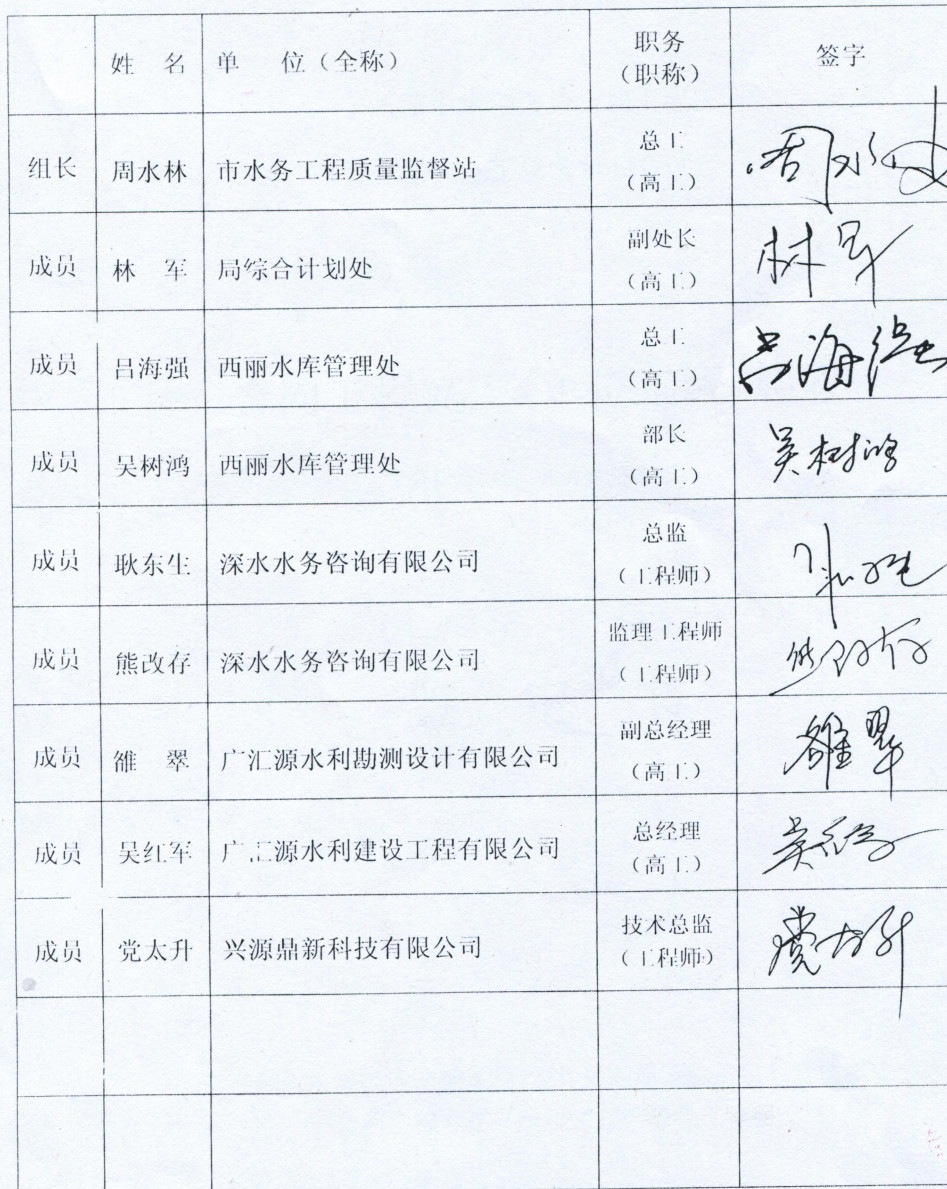 姓 名 单 位（全称） 职务（职称） 签字
组长 周水林 市水务工程质量监督站 总工（高工） 周水林
成员 林 军 局综合计划处 副处长（高工） 林军
成员 吕海强 西丽水库管理处 总工（高工） 吕海强
成员 吴树鸿 西丽水库管理处 部长（高工） 吴树鸿
成员 耿东生 深水水务咨询有限公司 总监（工程师）
成员 熊改存 深水水务咨询有限公司 监理工程师（工程师） 熊改存
成员 雒 翠 广汇源水利勘测设计有限公司 副总经理（高工） 雒翠
成员 吴红军 广汇源水利建设工程有限公司 总经理（高工） 吴红军
成员 党太升 兴源鼎新科技有限公司 技术总监（工程师） 党太升